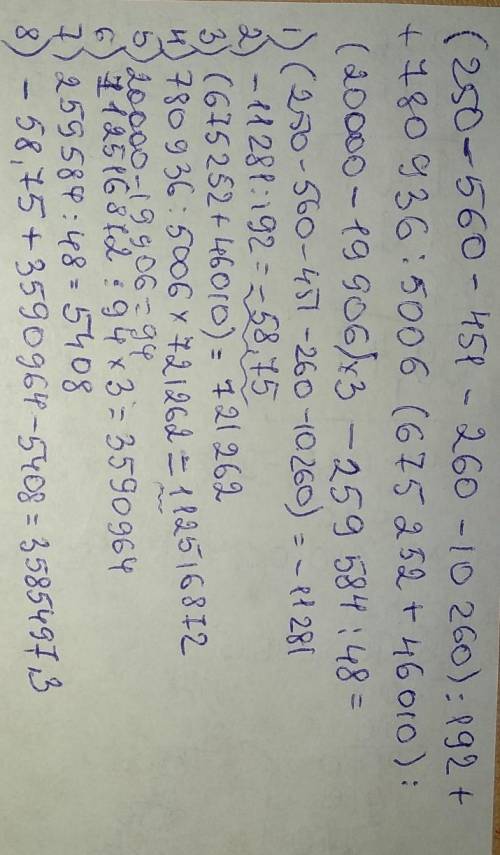 (250-560-451-260-10260):192+
+780936:5006 (675252+46010):
(20000-19906)×3-259584:48=
1) (250-560-451-260-10260)=-11281
2) -11281:192=-58,75
3) (675252+46010)=721262
4) 780936:5006×721262=112516872
5) 20000-19906=94
6) 112516872:94×3=3590964
7) 259584:48=5408
8) -58,75+3590964-5408=3585497,3